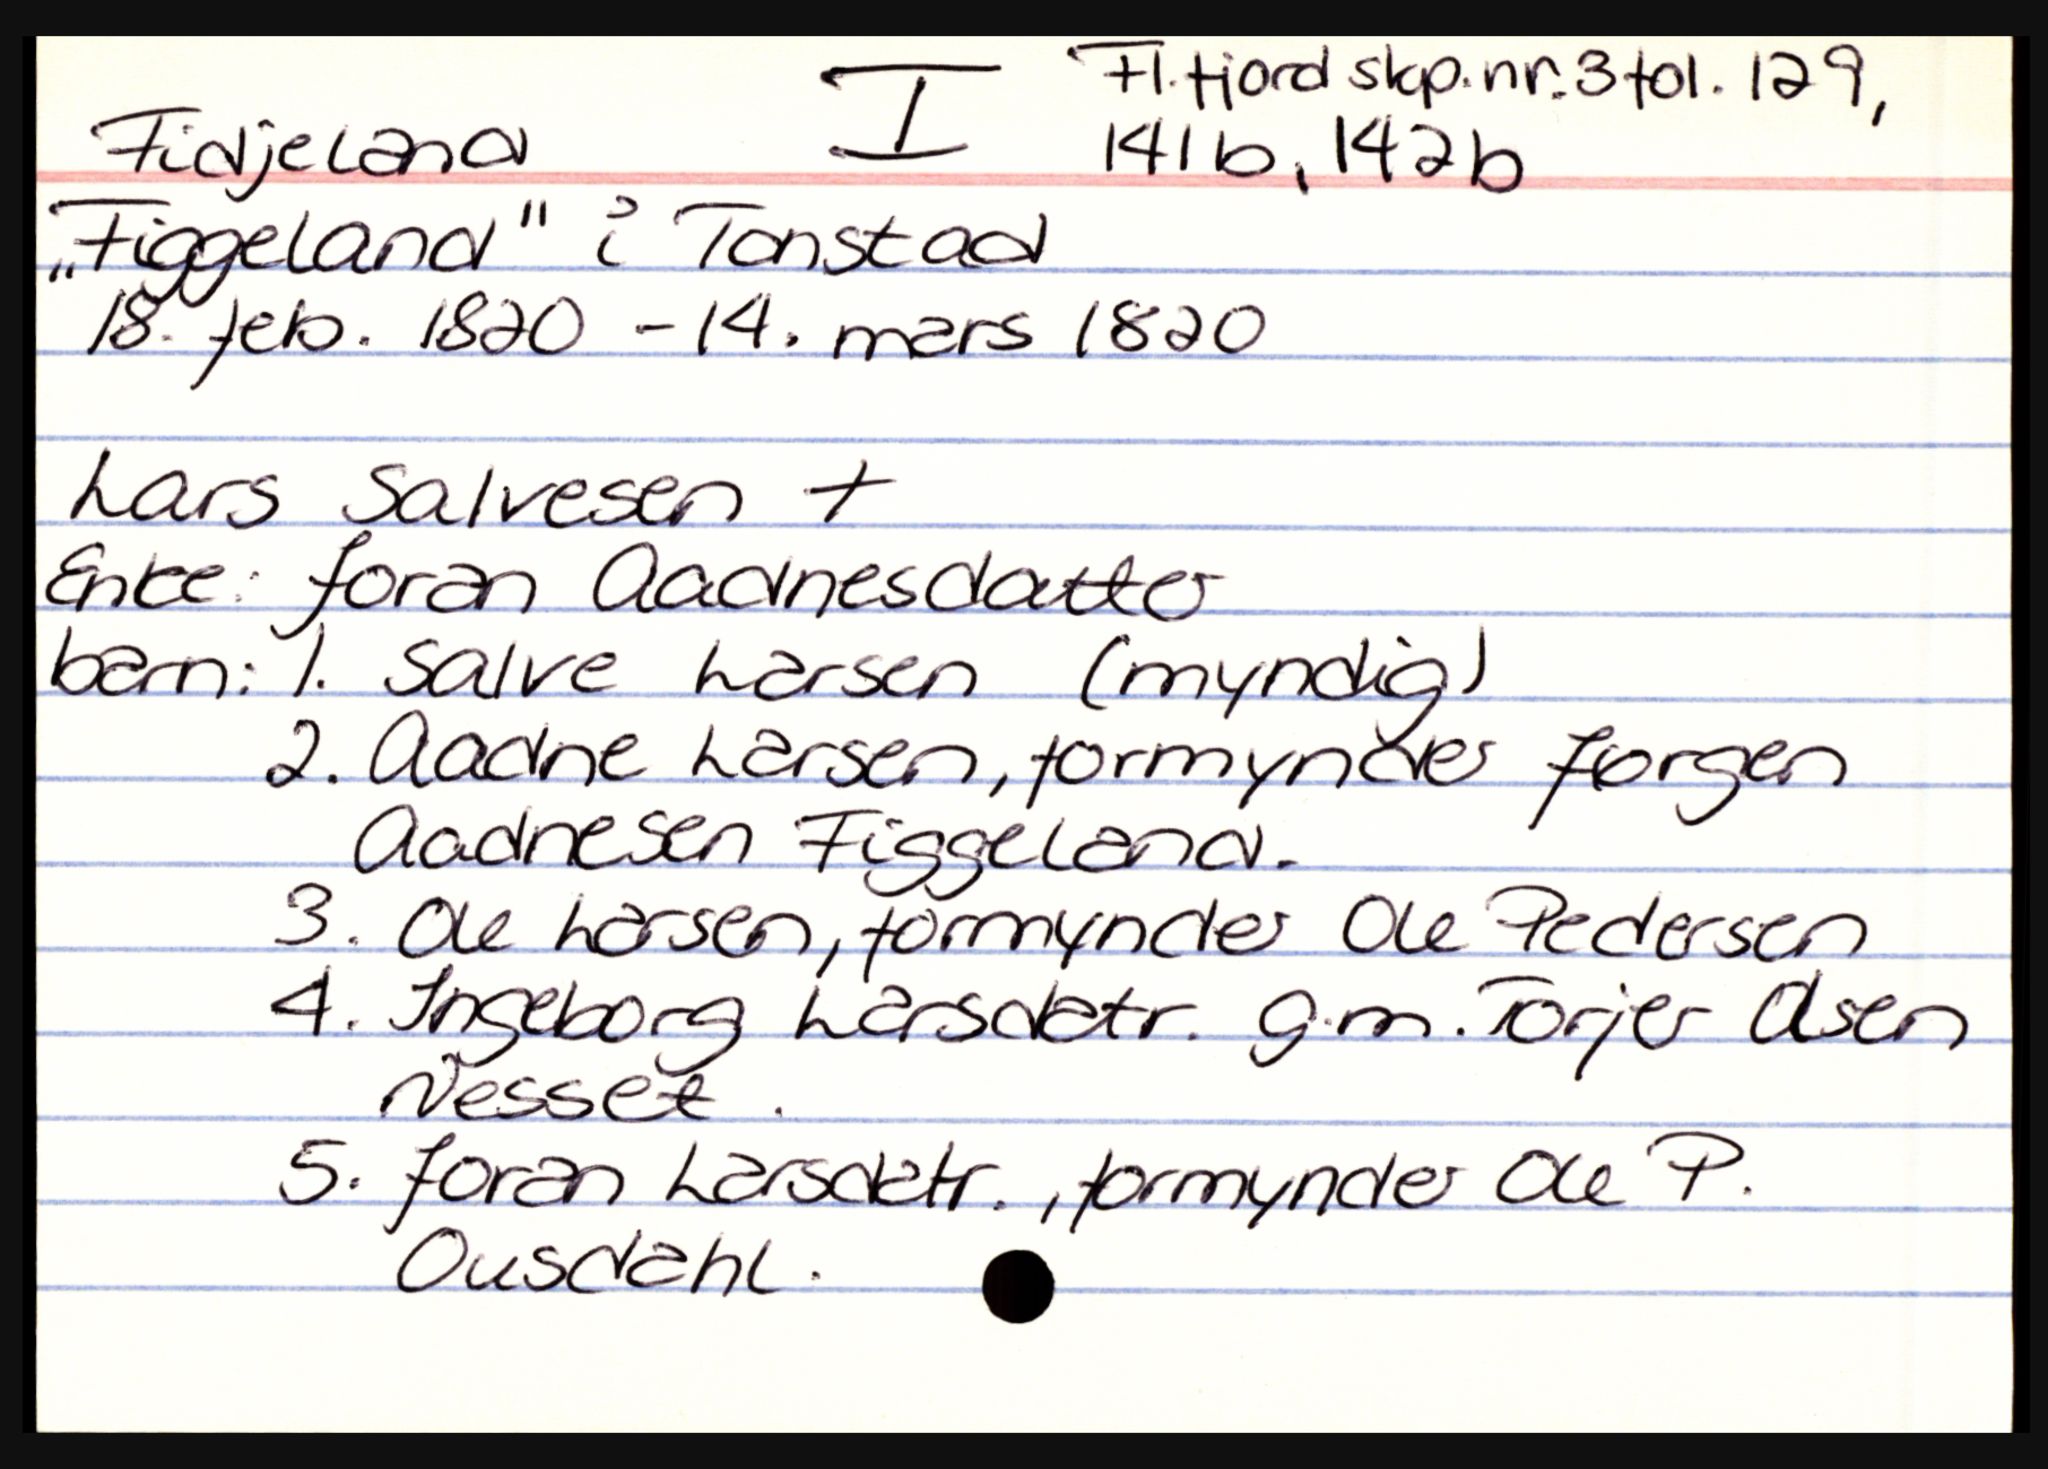 Fl.fjord skp.nr.3 fol. 129,
Fidjeland I 141b, 142b
„Figgeland" i Tonstad
18. feb. 1820 - 14. mars 1820
Lars Salvesen +
Enke: Joran Aadnesdatter
barn: 1. Salve Larsen (myndig)
2. Aadne Larsen, formynder Jørgen
Aadnesen Figgeland.
3. Ole Larsen, formynder Ole Pedersen
4. Ingeborg Larsdatr. g.m. Torjer Olsen
Nesset.
5. Joran Larsdatr., formynder Ole P.
Ousdahl.